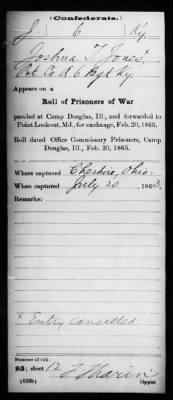 (Confederate.)
J. 6 Ky.
Joshua T Jones x
Pvt. Co. A 6 Regt Ky.
Appears on a
Roll of Prisoners of War
paroled at Camp Douglas, Ill., and forwarded to
Point Lookout, Md., for exchange, Feb. 20, 1865.
Roll dated Office Commissary Prisoners, Camp
Douglas, Ill., Feb. 20, 1865.
Where captured Cheshire, Ohio.
When captured July 20, 1863.
Remarks:
x Entry cancelled
Number of roll:
85; sheet 12
(639b) Copyist.